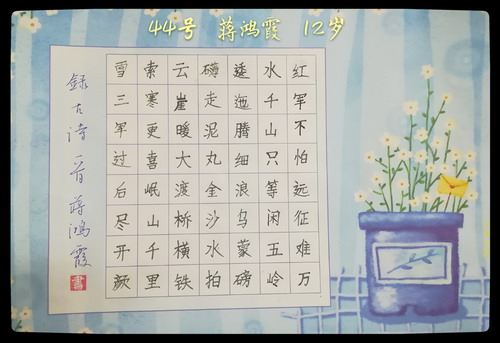 44号 蒋鸿霞 12岁
红军不怕远征难万
水千山只等闲五岭
逶迤腾细浪乌蒙磅
礴走泥丸金沙水拍
云崖暖大渡桥横铁
索寒更喜岷山千里
雪三军过后尽开颜
録古诗一首蒋鸿霞